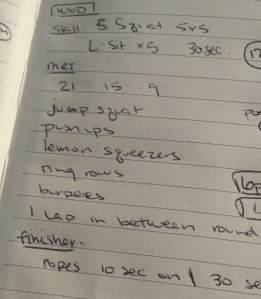 WOD
Skill B. Squat 5x5
L-Sit x5 30 sec.
met:
21 15 9
jump squat
pushups
lemon squeezers
ring rows
burpees
1 Lap in between round
finisher.
ropes 10 sec on / 30 se